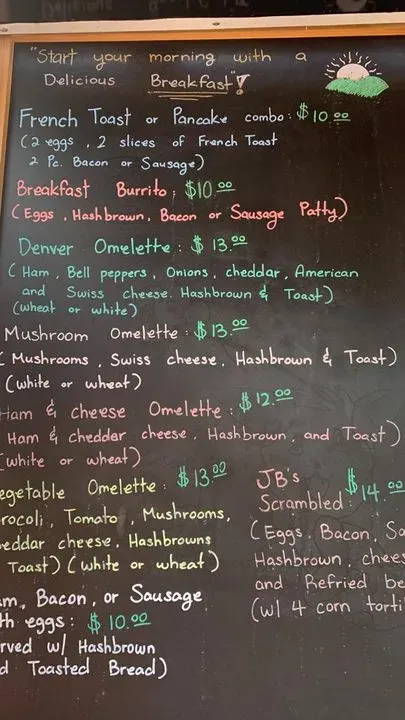 "Start your morning with a
Delicious Breakfast"!
French Toast or Pancake combo: $10.00
(2 eggs, 2 slices of French Toast
2 Pc. Bacon or Sausage)
Breakfast Burrito: $10.00
(Eggs, Hashbrown, Bacon or Sausage Patty)
Denver Omelette: $13.00
(Ham, Bell peppers, Onions, cheddar, American
and Swiss cheese. Hashbrown & Toast)
(wheat or white)
Mushroom Omelette: $13.00
(Mushrooms, Swiss cheese, Hashbrown & Toast)
(white or wheat)
Ham & cheese Omelette: $12.00
Ham & cheddar cheese, Hashbrown, and Toast)
(white or wheat)
egetable Omelette: $13.00
rocoli, Tomato, Mushrooms,
eddar cheese, Hashbrowns
Toast) (white or wheat)
m, Bacon, or Sausage
th eggs: $10.00
rved w/ Hashbrown
d Toasted Bread)
JB's
Scrambled: $14.00
(Eggs, Bacon, Sa
Hashbrown, chees
and Refried be
(w/ 4 corn torti